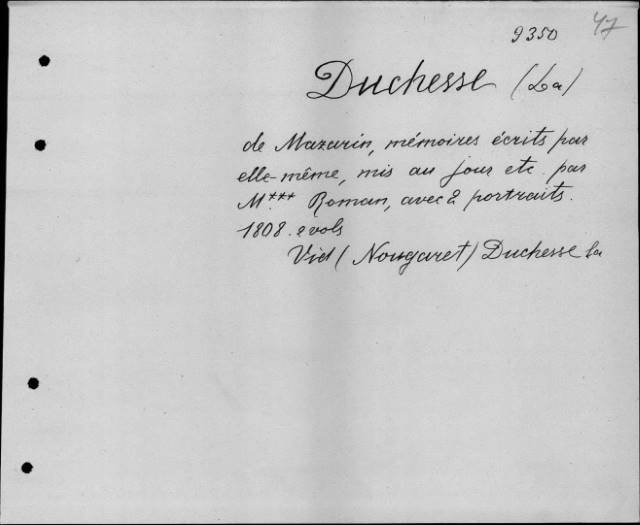 9350 47
Duchesse (La)
de Mazarin, mémoires écrits par
elle-même, mis au jour etc. par
M*** Roman, avec 2 portraits.
1808. 2 vols
Vid (Nougaret) Duchesse la